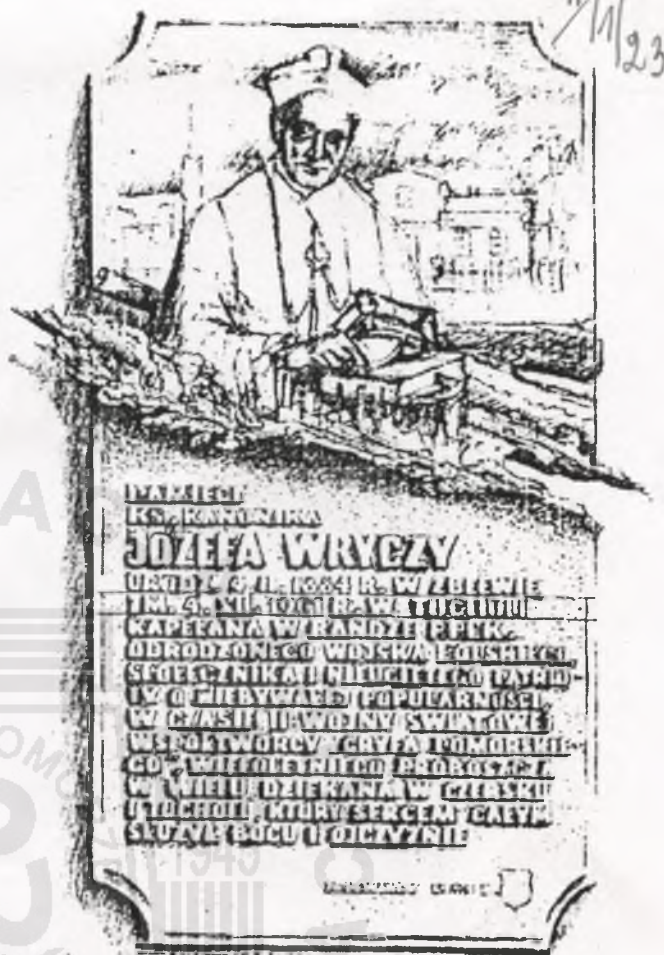 11/23
PAMIĘCI
KS. KANONIKA
JÓZEFA WRYCZY
URODZ. 4. I. 1884 R. W ZBLEWIE
ZM. 4. XII. 1961 R. W TUCHOLI
KAPELANA W RANDZE PPŁK.
ODRODZONEGO WOJSKA POLSKIEGO,
SPOŁECZNIKA I NIEUGIĘTEGO PATRIO-
TY O NIEBYWAŁEJ POPULARNOŚCI,
W CZASIE II WOJNY ŚWIATOWEJ
WSPÓŁTWÓRCY "GRYFA POMORSKIE-
GO", WIELOLETNIEGO PROBOSZCZA
W WIELU, DZIEKANA W CZERSKU
I TUCHOLI, KTÓRY SERCEM CAŁYM
SŁUŻYŁ BOGU I OJCZYŹNIE
1945